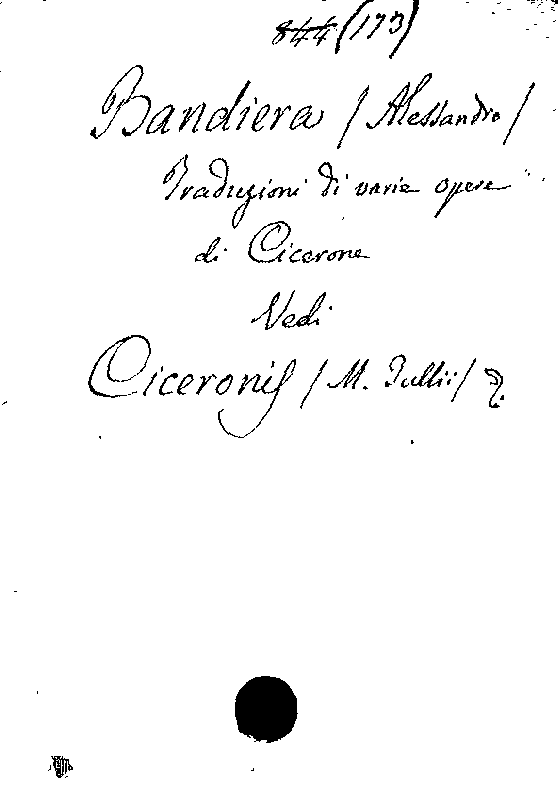 844 (173)
Bandiera / Alessandro /
Traduzioni di varie opere
di Cicerone
Vedi
Ciceronis / M. Tullii /